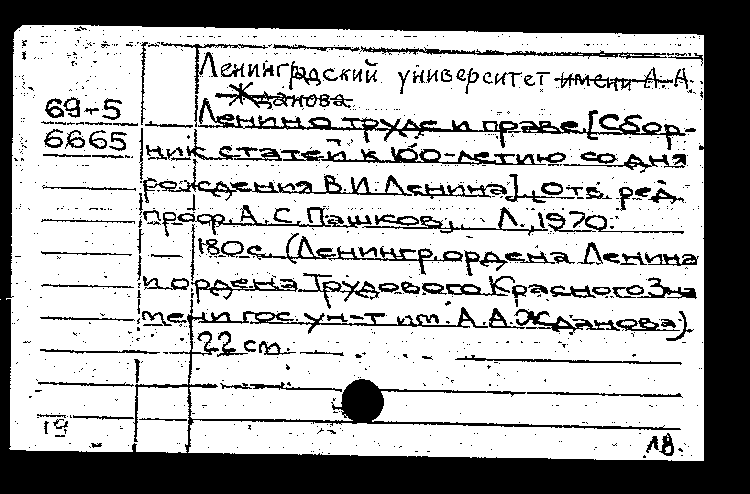 Ленинградский университет имени А. А.
Жданова
69-5
Ленин о труде и праве. [Сбор-
6665
ник статей к 100-летию со дня
рождения В.И. Ленина]. Отв. ред.
проф. А. С. Пашков. Л., 1970.
180с. (Ленингр. ордена Ленина
и ордена Трудового Красного Зна
мени гос. ун-т им. А.А.Жданова).
22 см.
19
18.